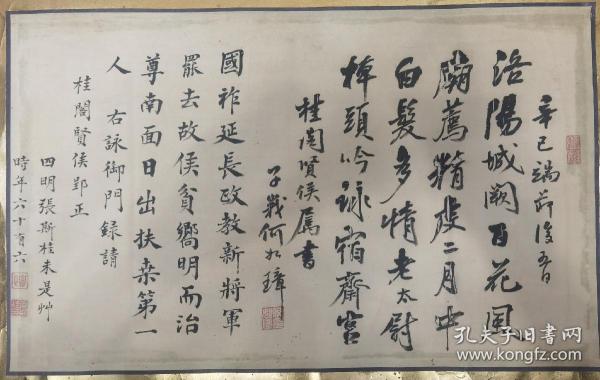 辛巳端節後五日
洛陽城闕百花風
廟薦精虔二月中
白髮多情老太尉
掉頭吟詠宿齋宮
桂閣賢侯屬書
子峩何如璋
國祚延長政教新將軍
罷去故侯貧嚮明而治
尊南面日出扶桒第一
人 右詠御門錄請
桂閣賢侯郢正
四明張斯桂未是艸
時年六十有六
孔夫子旧书网
www.kongfz.com